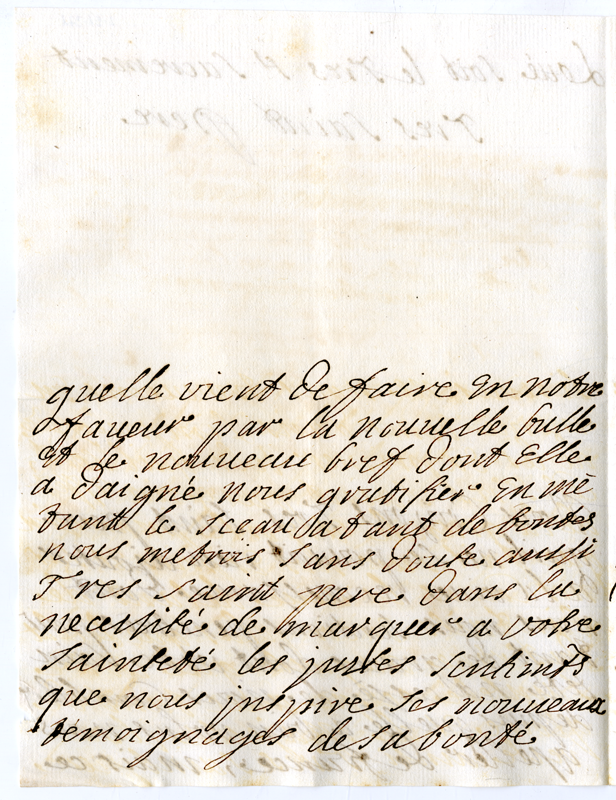 quelle vient de faire en notre
faveur par la nouvelle bulle
et le nouveau bref dont elle
a daigné nous gratifier en mé
tant le sceau a tant de bontés
nous metrois sans doute aussi
Tres saint pere dans la
necessité de marquer a votre
sainteté les justes sentimts
que nous jnspire ses nouveaux
témoignages de sa bonté